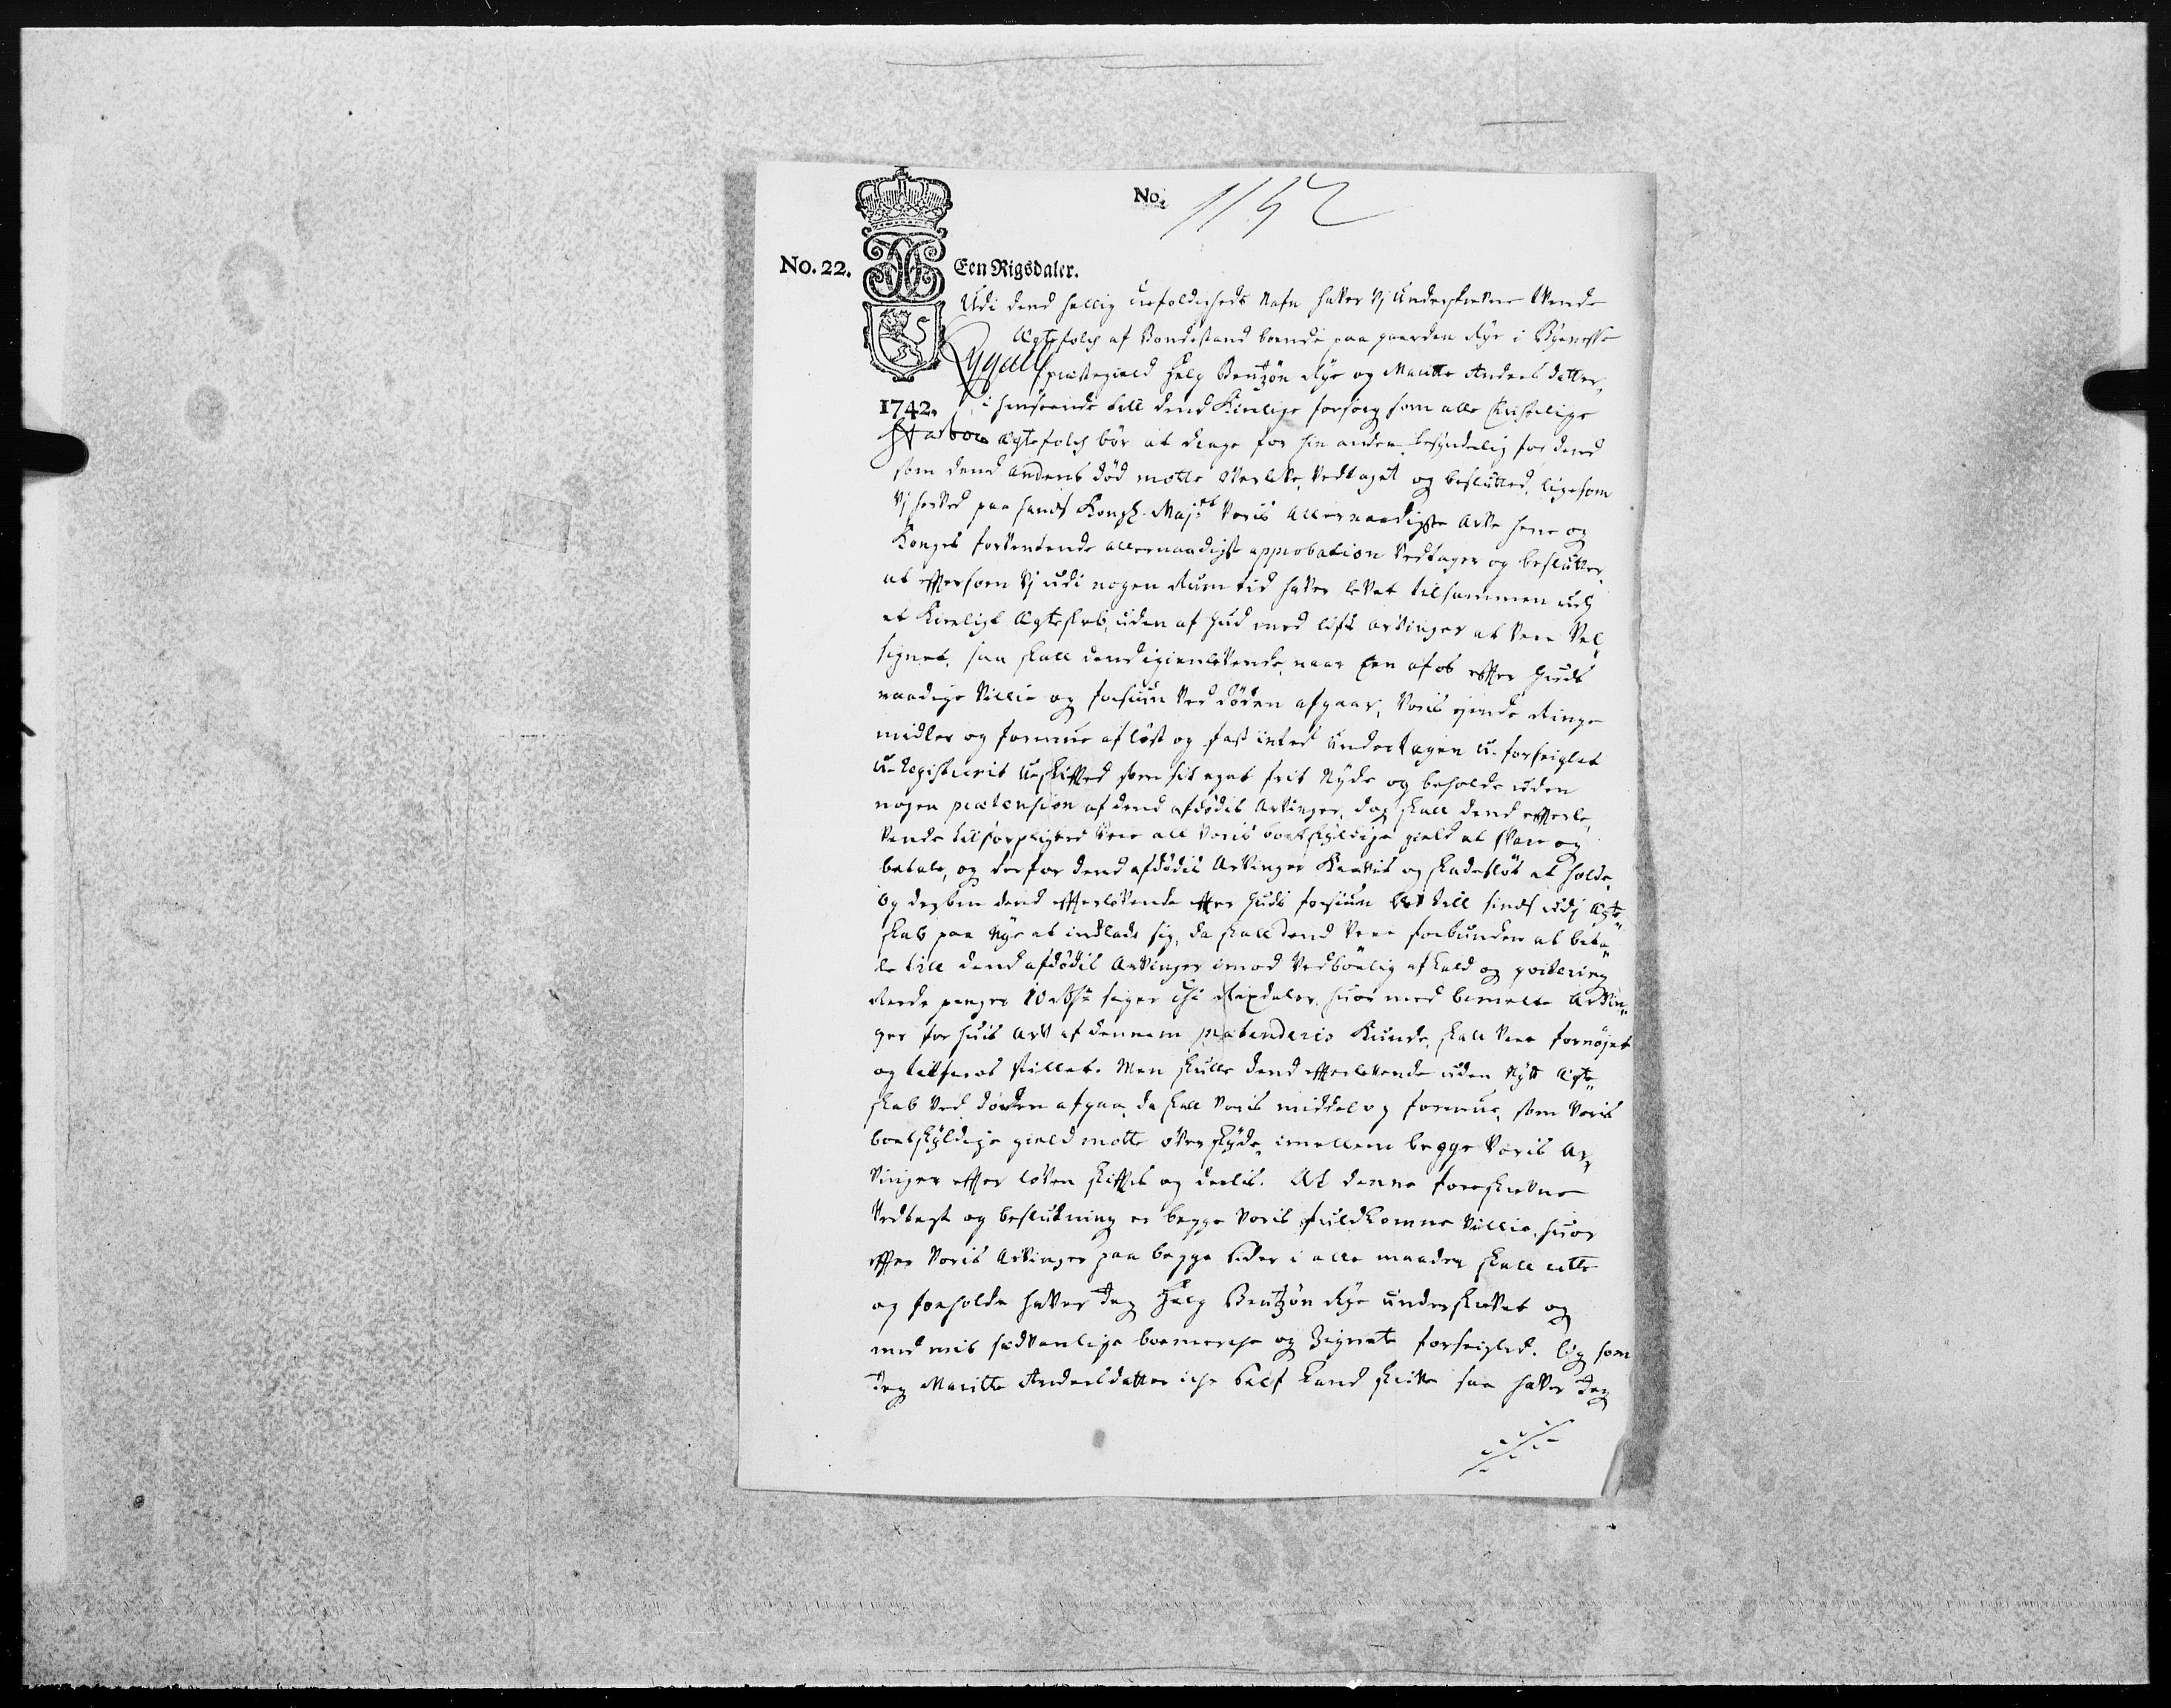 No. 1152
No. 22. Een Rigsdaler.
Udi dend hellig trefoldigheds Nafn haver Vj Underskrevne Tvende
Ægtefolch af Bondestand boende paa gaarden Rye i Byenesse
præstegield Helg Bentzøn Rye og Maritte Anders datter,
1742. i henseende till dend Kierlige forsorg som alle Christelige
ægtefolch bör at drage for hin anden, besynderlig for dend
som dend andens död motte overleve, vedtaget og beslutted, ligesom
Vj herved paa hands Kongl. Mayts Voris allernaadigste Arve herre og
Konges forventende allernaadigst approbation Vedtager og beslutter,
at efftersom Vj udi nogen Rum tid haver levet tilsammen udj
et Kierligt Ægteskab, uden af Gud med lifs arvinger at være Vel,
signet, saa skall dend igienlevende, naar Een af os effter Guds
naadige Villie og forsiun Ved döden afgaar, Voris ejende Ringe
midler og formue af löst og fast inted undertagen u-forseiglet
u-Registrerit u-skiffted som sit eget frit Nyde og beholde uden
nogen prætension af dend afdödis Arvinger, dog skall dend effterle,
vende tilforpligted være all Voris bortskyldige gield at svare og
betale, og derfor dend afdödis Arvinger Kravis og skadeslös at holde,
Og dersom dend effterlevende effter Guds forsiun blev till sinds udj Ægte,,
skab paa Nye at indlade sig, da skall dend være forbunden at beta,,
le till dend afdödis Arvinger imod Vedbörlig afkald og qvitering
Rede penger 10 Rdr siger Thi Rixdaler, huor med bemelte Arvin,,
ger for huis Arv af dennem prætenderis Kunde, skall være fornöjet
og tilfreds stillet. Men skulle dend effterlevende uden Nytt Ægte,,
skab Ved döden afgaa, da skall Voris middel og formue, som Voris
bortskyldige gield motte överskyde, imellem begge Voris Ar,
vinger effter loven skifftes og deelis. At denne foreskrevne
Vedtegt og beslutning er begge Voris fuldkomne Villie, huor
effter Voris Arvinger paa begge sider i alle maader skall rette
og forholde haver Jeg Helg Bentzøn Rye underskrevet og
med mit sædvanlige boemerche og Zignete forseigled. Og som
Jeg Maritte Andersdatter iche self kand skrive saa haver Jeg